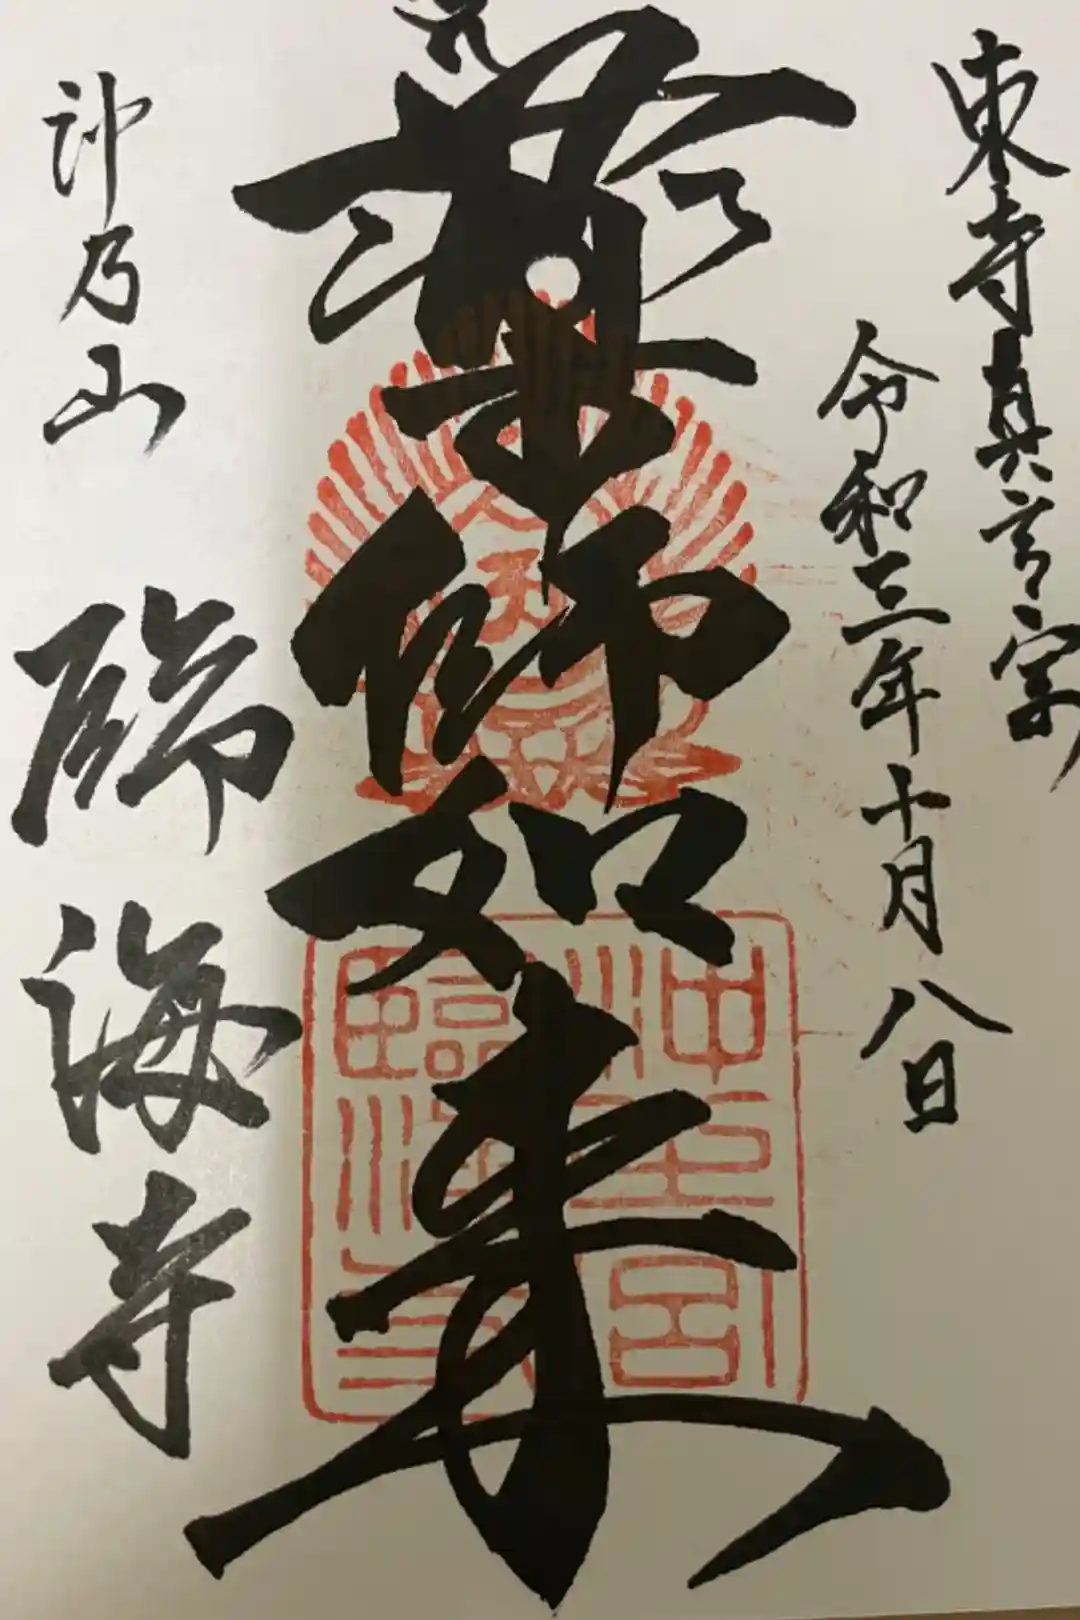 東寺真言宗
令和三年十月八日
薬師如来
神乃山
臨海寺